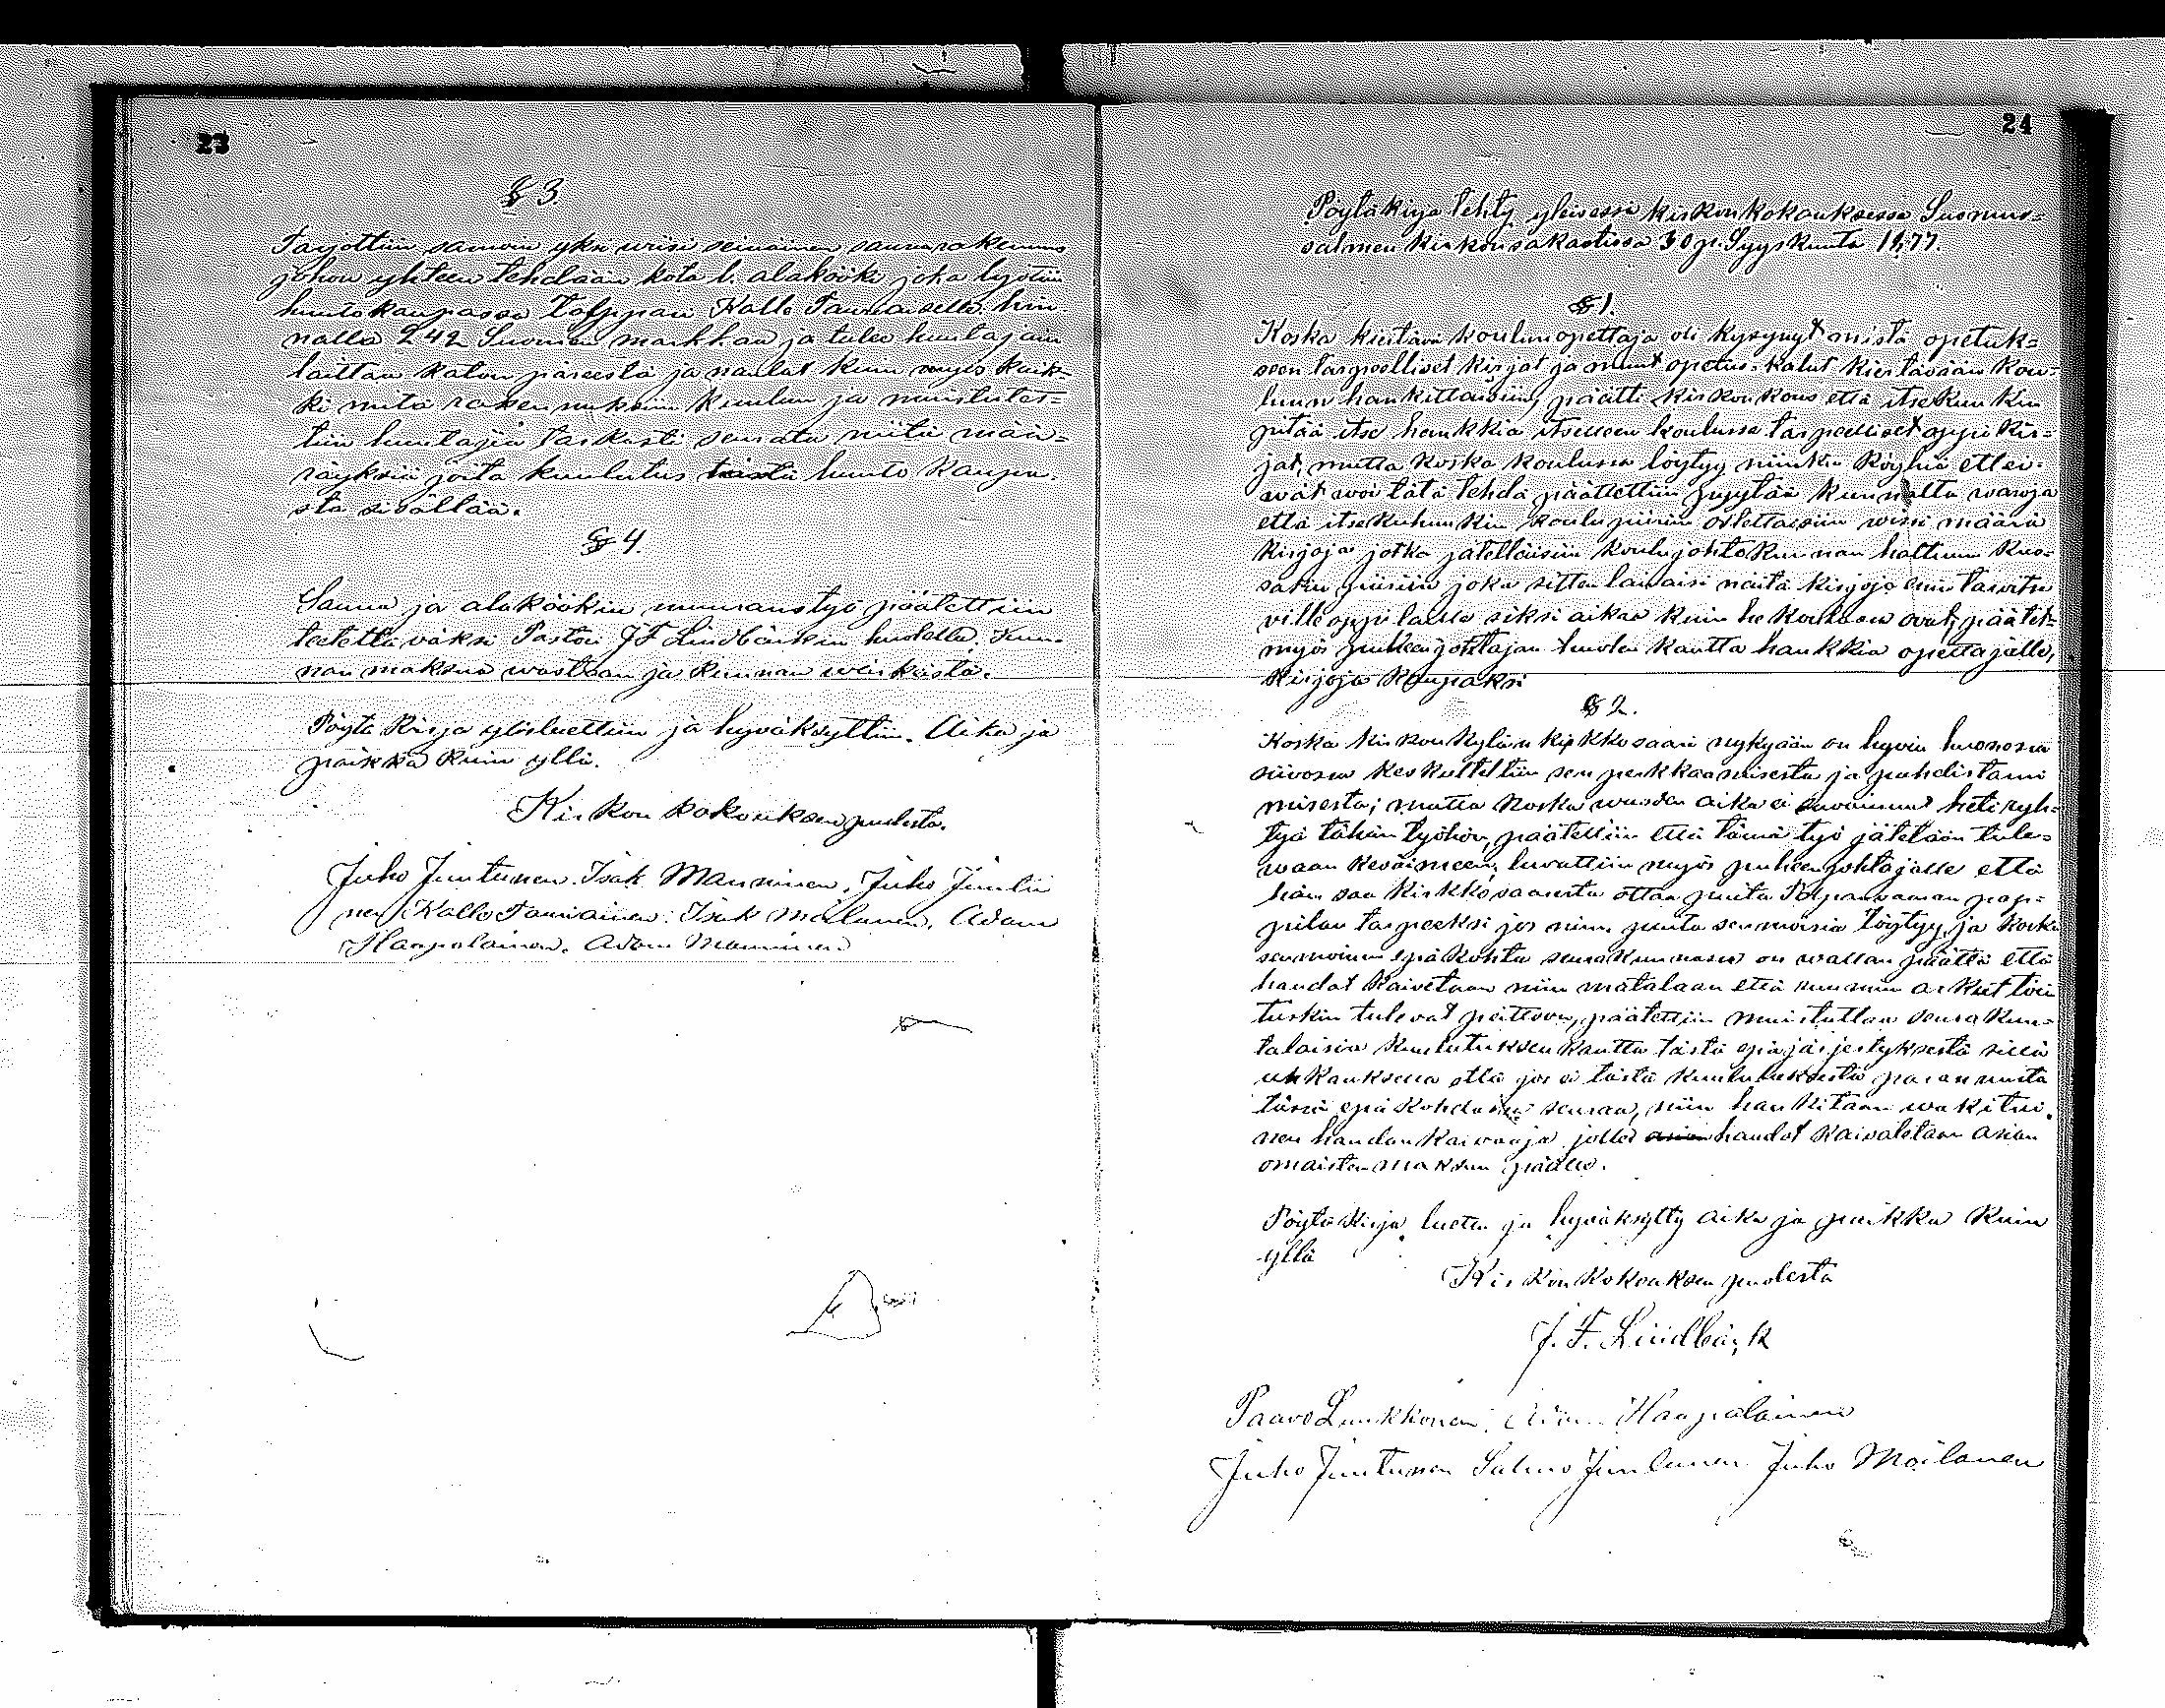 23
§ 3.
Tarjottiin samoin yksi wiisi seinäinen saunarakennus
johon yhteen tehdään kota l. alakööki joka lyötiin
huutokaupassa Kalle Tauriaiselle hin-
nalla 242 Suomen markkaa ja tulee huutajan
laittaa katon päreestä ja naulat kuin myös kaik-
ki mitä rakennukseen kuuluu ja muistutet-
tiin huutajia tarkasti seurata niitä mää-
räyksiä joita kuulutus tästä huuto kaupa-
sta sisältää.
§ 4.
Sauna ja alaköökin muuraustyö päätettiin
teetettäväksi Pastori J F Lindbäckin huolella, kun-
nan maksua wastaan ja kunnan
Pöytä kirja ylösluettiin ja hyväksyttiin. Aika ja
paikka kuin yllä.
Kirkon kokouksen puolesta.
Juho Juntunen. Isak Manninen. Juho Juntti
nen Kalle Tauriainen. Isak Moilanen. Adam
Haapalainen. Adam Manninen
24
Pöytäkirja tehty yleisessä kirkonkokouksessa Suomus-
salmen kirkonsakastissa 30 p. Syyskuuta 1877.
§ 1.
Koska kiertävän koulunopettaja oli kysynyt mistä opetuk-
seen tarpeelliset kirjat ja muut opetus-kalut kiertävään kou-
luun hankittaisiin, päätti kirkonkous että itse kun kin
pitää itse hankkia itselleen koulussa tarpeelliset oppi kir-
jat, mutta koska koulussa löytyy niinkin köyhiä ett ei-
wät woi tätä tehdä päätettiin pyytää kunnalta waroja
että itsekuhunkin koulupiiriin ostettaisiin wissi määrä
kirjoja jotka jätettäisiin koulujohtokunnan haltuun kus-
sakin piirissä joka sitten lainaisi näitä kirjoja enin tarvitse
ville oppilaille siksi aikaa kuin he koulussa ovat, päätet-
myös puheenjohtajan huolen kautta hankkia opettajalle,
kirjoja kaupaksi
§ 2.
Koska kirkonkylän kirkkosaari nykyään on hyvin huonossa
siivossa keskusteltiin sen perkkaamisesta ja puhdistami
misesta; mutta koska wuoden aika ei heti ryh-
tyä tähän työhön, päätettiin että tämä työ jätetään tule-
waan kevääseen, luvattiin myös puheenjohtajalle että
hän saa kirkkosaaresta ottaa puita pap-
pilan tarpeeksi jos niin puita senmoisia löytyy, ja koska
senmoinen epäkohta seurakunnassa on wallan päällä että
haudat kaivetaan niin matalaan että ruumin arkut töin
tuskin tulevat peittoon, päätettiin muistuttaa seurakun-
talaisia kuulutuksen kautta tästä epäjärjestyksestä sillä
uhkauksella että jos ei tästä kuulutuksesta parannusta
tässä epäkohdassa seuraa, niin hankitaan wakitui
nen haudankaivaaja jolla haudat kaivatetaan asian
omaisten maksun päälle.
Pöytäkirja luettu ja hyväksytty aika ja paikka kuin
yllä
Kirkonkokouksen puolesta
J. F. Lindbäck
Paavo Luukkonen. Adam Haapalainen
Juho Juntunen Salmo Juntunen Juho Moilanen